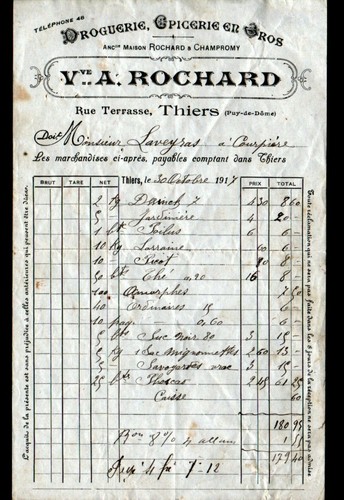 TÉLÉPHONE 46
DROGUERIE, EPICERIE EN GROS
ANCne MAISON ROCHARD & CHAMPROMY
Vve A. ROCHARD
Rue Terrasse, Thiers (Puy-de-Dôme)
Doit Monsieur Laveyras à Courpière
Les marchandises ci-après, payables comptant dans Thiers
BRUT TARE NET Thiers, le 30 Octobre 1917 PRIX
2 Kg 7 4 30 8 60
5 Jardinière 4 20 -
1 Poilus 6 -
10 Kg Lorraine 6 -
10 Picot 80 8 -
50 Thé 0,20 16 8 -
100 Amorphes 7 50
40 Ordinaires 15 6 -
10 paq. 0,60 6 -
5 Suc noir 80 3 15 -
5 Kg 1 Sac mignonnettes 2 60 13 -
5 Savoyardes vrac 3 15 -
25 bte Phoscao 2 45 61 25
Caisse 60
180 95
Bon 2% 4 1 55
179 40
7-12
L'acquit de la présente est sans préjudice à celles antérieures qui peuvent être dûes.
Toute réclamation qui ne sera pas faite dans les 8 jours de la réception ne sera pas admise.